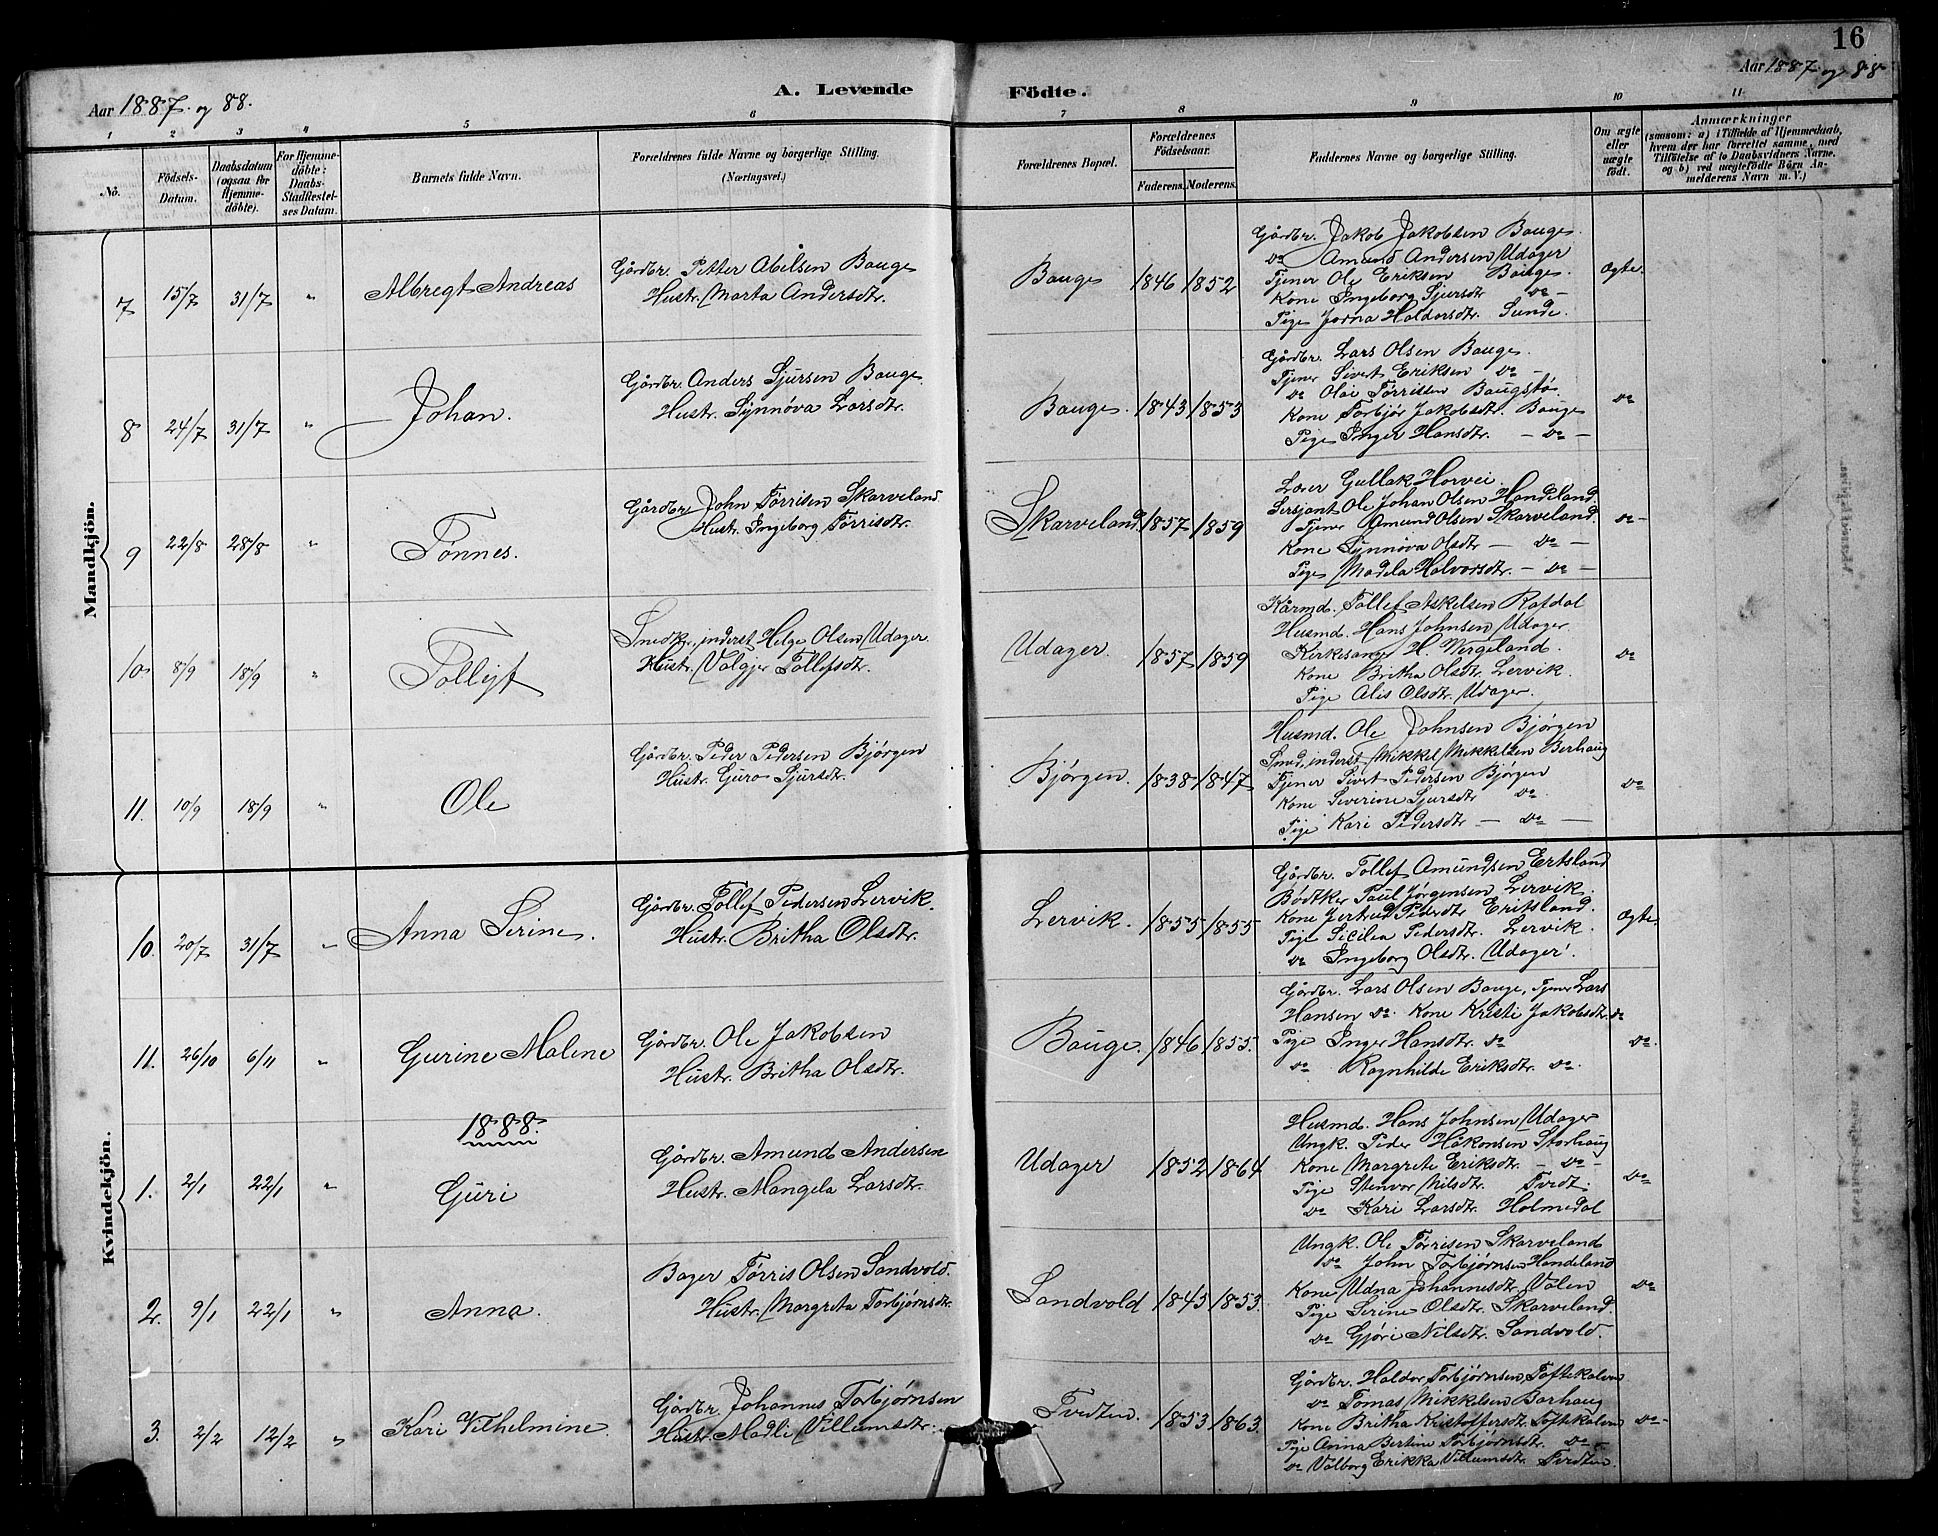 16
Aar 1887. og 88.
A. Levende Födte.
Aar 1887. og 88
1 2 3 4 5 6 7 8 9 10 11
No.
Födsels-Datum.
Daabsdatum (ogsaa for Hjemme-döbte).
For Hjemme-döbte: Daabs-Stadfæstel-ses Datum.
Barnets fulde Navn.
Forældrenes fulde Navne og borgerlige Stilling.
(Næringsvei.)
Forældrenes Bopæl.
Forældrenes Födselsaar.
Faderens. Moderens.
Faddernes Navne og borgerlige Stilling.
Om ægte eller uægte födt.
Anmærkninger
(saasom: a) i Tilfælde af Hjemmedaab,
hvem der har forrettet samme, med
Tilföielse af to Daabsvidners Navne.
og b) ved uægtefödte Börn An-
melderens Navn m. V.)
Mandkjön.
7 15/7 31/7 " Albregt Andreas
Gårdbr. Petter Abelsen Bauge
Hustr. Marta Andersdtr.
Bauge 1846 1852
Gårdbr. Jakob Jakobsen Bauge.
do Amund Andersen Udager
Tjener Ole Eriksen Bauge.
Kone Ingeborg Sjursdtr do -
Pige Jorna Haldorsdtr. Sunde.
Ægte.
8 24/7 31/7 " Johan.
Gårdbr. Anders Sjursen Bauge
Hustr. Synnøva Larsdtr.
Bauge. 1843 1853
Gårdbr. Lars Olsen Bauge.
Tjener Sivert Eriksen do -
do Olai Tørrissen Baugstø
Kone Torbjør Jakobsdtr. Bauge
Pige Inger Hansdtr. - do -
do
9 22/8 28/8 " Tønnes.
Gårdbr. John Tørrisen Skarveland
Hustr. Ingeborg Tørrisdtr.
Skarveland. 1857 1859
Lærer Gullak Horvei.
Sersjant Ole Johan Olsen Handeland.
Tjener Amund Olsen Skarveland.
Kone Synnøva Olsdtr - do -
Pige Madela Halvorsdtr. - do -
do -
10 8/9 18/9 " Tollef
Snedk., inderst Helge Olsen Udager.
Hustr. Valgjer Tollefsdtr.
Udager. 1857 1859
Kårmd. Tollef Askelsen Rafdal
Husmd. Hans Johnsen Udager
Kirkesang. H. Vergeland.
Kone Britha Olsdtr. Lervik.
Pige Alis Olsdtr. Udager.
do
11. 10/9 18/9 " Ole
Gårdbr. Peder Pedersen Bjørgen
Hustr. Guro Sjursdtr.
Bjørgen. 1838 1847
Husmd. Ole Johnsen Bjørgen
Smed, inderst Mikkel Mikkelsen Berhaug
Tjener Sivert Pedersen Bjørgen
Kone Severine Sjursdtr do.
Pige Kari Pedersdtr - do -
do
Kvindekjön.
10. 20/7 31/7 " Anna Serine.
Gårdbr. Tollef Pedersen Lervik.
Hustr. Britha Olsdtr.
Lervik. 1855 1855
Gårdbr. Tollef Amundsen Ertsland
Bødtker Paul Jørgensen Lervik.
Kone Jertrud Pedersdtr Eritsland.
Pige Sicilia Pedersdtr. Lervik.
do Ingeborg Olsdtr. Udager.
Ægte.
11. 26/10 6/11 " Gurine Malene
Gårdbr. Ole Jakobsen
Hustr. Britha Olsdtr.
Bauge. 1846 1855.
Gårdbr. Lars Olsen Bauge, Tjener Lars
Hansen do. Kone Kristi Jakobsdtr. do
Pige Inger Hansdtr. do
do Ragnhilde Eriksdtr. do.
do.
1888.
1. 2/1 22/1 " Guri
Gårdbr. Amund Andersen
Hustr. Mangela Larsdtr.
Udager 1852 1864
Husmd. Hans Johnsen Udager
Ungk. Peder Håkonsen Storhaug
Kone Margrete Eriksdtr. - do -
Pige Stenvor Nilsdtr. Tvedt.
do Kari Larsdtr. Holmedal
do
2. 9/1 22/1 " Anna.
Bager Tørris Olsen Sandvold.
Hustr. Margreta Torbjørnsdtr.
Sandvold 1845 1853.
Ungk. Ole Tørrisen Skarveland
do John Torbjørnsen Handeland
Kone Udna Johannesdtr. Valen
Pige Serine Olsdtr. Skarveland.
do Gjøri Nilsdtr. Sandvold.
do
3. 2/2 12/2 " Kari Vilhelmine.
Gårdbr. Johannes Torbjørnsen
Hustr. Madli Villumsdtr.
Tvedten. 1853 1863.
Gårdbr. Haldor Torbjørnsen Toftekalven
do Tomas Mikkelsen Barhaug
Kone Britha Kristoffersdtr. Toftekalven
Pige Anna Bertine Torbjørnsdtr. do -
do Valborg Erikka Villumsdtr. Tvedten
do -